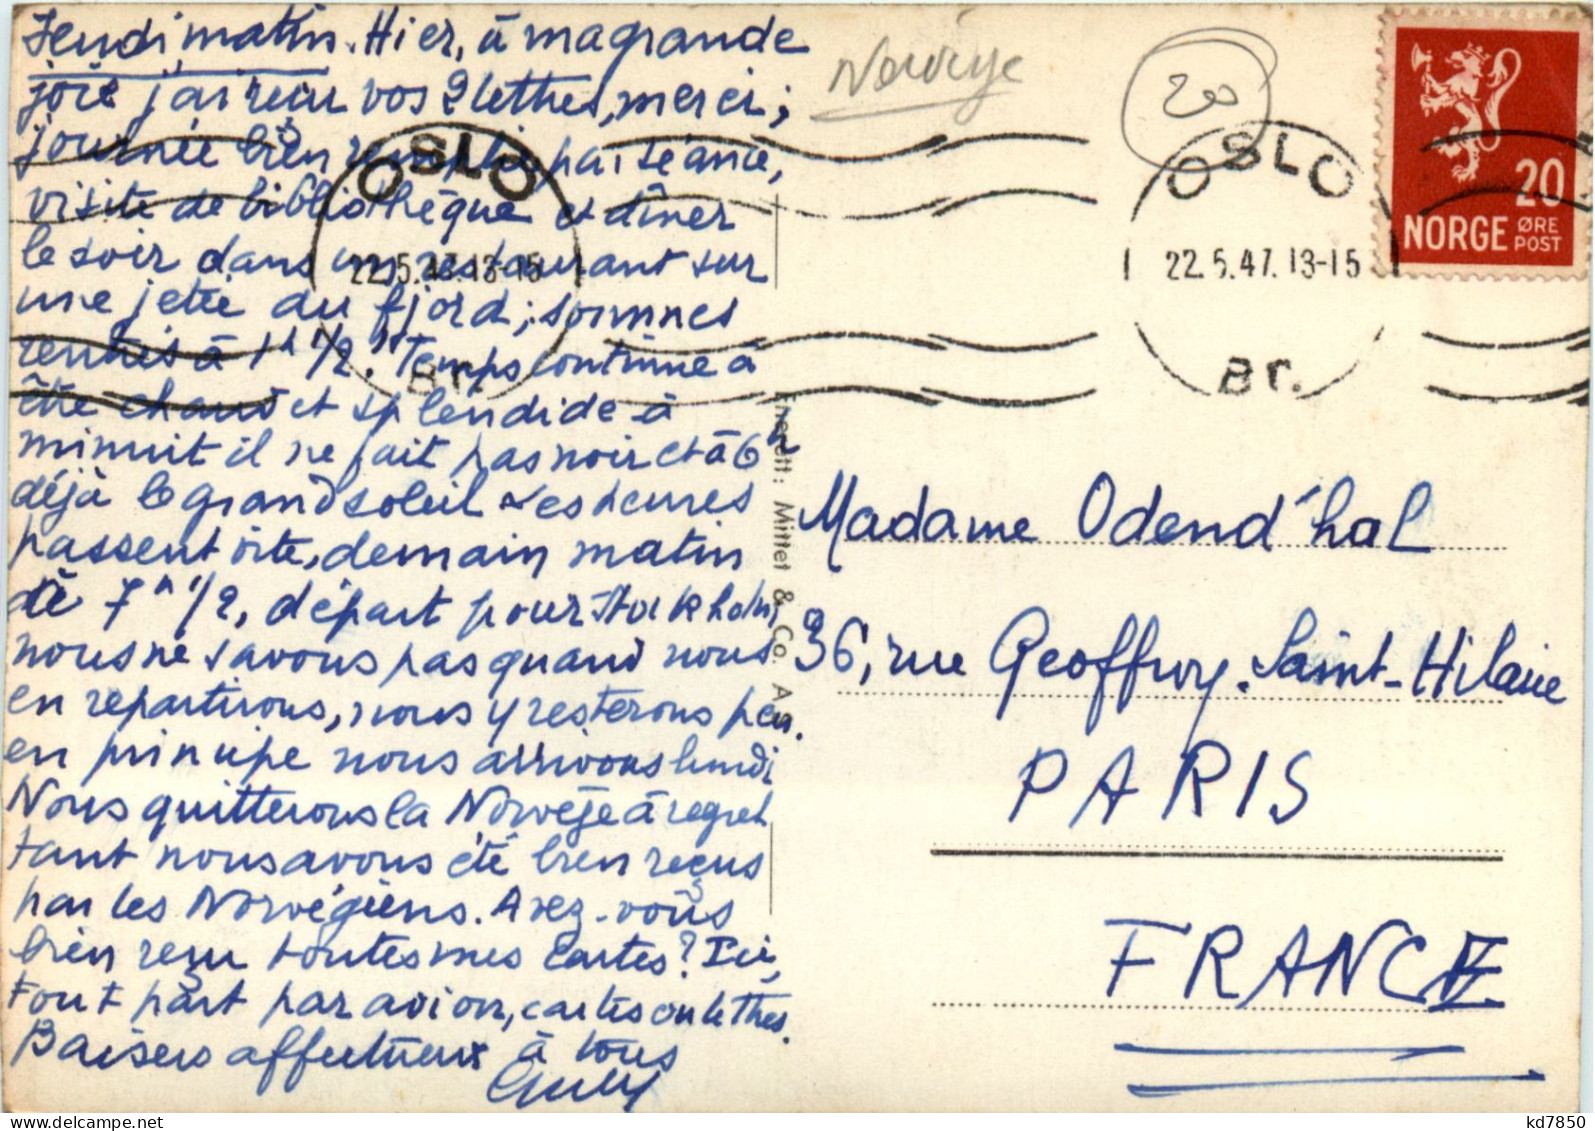 Jeudi matin. Hier, à ma grande
joie j'ai reçu vos 2 lettres, merci;
journée bien remplie par séance,
visite de bibliothèque et dîner
le soir dans un restaurant sur
une jetée du fjord; sommes
rentrés à 1h 1/2. Temps continue à
être chaud et splendide à
minuit il ne fait pas noir et à 6h
déjà le grand soleil les heures
passent vite, demain matin
à 7h 1/2, départ pour Stockholm
nous ne savons pas quand nous
en repartirons, nous y resterons peu.
en principe nous arrivons lundi
Nous quitterons la Norvège à regret
tant nous avons été bien reçus
par les Norvégiens. Avez-vous
bien reçu toutes mes cartes? Ici,
tout part par avion, cartes ou lettres.
Baisers affectueux à tous
Norvège
20
OSLO
22.5.47.13-15
Br.
OSLO
22.5.47.13-15
Br.
20
NORGE ØRE
POST
Enerett: Mittet & Co. A/S
Madame Odend'hal
36, rue Geoffroy-Saint-Hilaire
PARIS
FRANCE
delcampe.net
kd7850